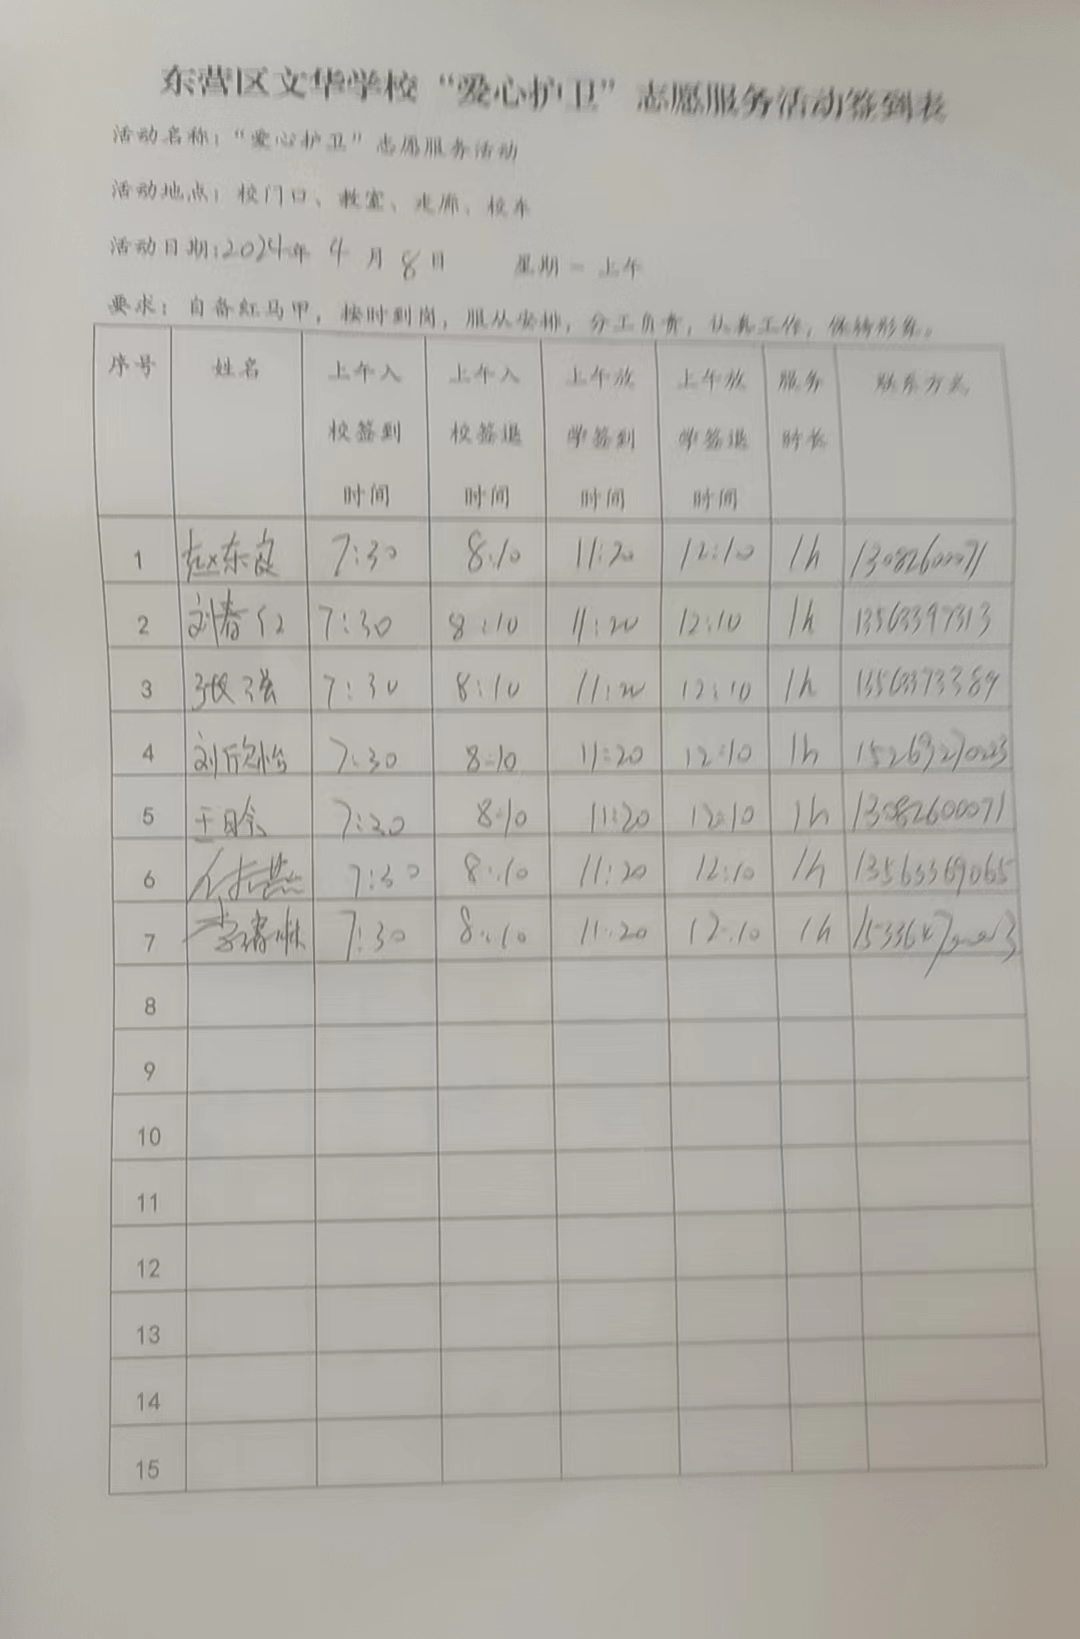 东营区文华学校“爱心护卫”志愿服务活动签到表
活动名称：“爱心护卫”志愿服务活动
活动地点：校门口、教室、走廊、校车
活动日期:2024年 4月 8日 星期一 上午
要求：自备红马甲，按时到岗，服从安排，分工负责，认真工作，保持形象。
序号 姓名 上午入校签到时间 上午入校签退时间 上午放学签到时间 上午放学签退时间 服务时长 联系方式
1 赵东良 7:30 8:10 11:20 12:10 1h 13082600071
2 刘春红 7:30 8:10 11:20 12:10 1h 13563397313
3 张强 7:30 8:10 11:20 12:10 1h 13563373389
4 刘欣怡 7:30 8:10 11:20 12:10 1h
5 王晗 7:30 8:10 11:20 12:10 1h 13082600071
6 7:30 8:10 11:20 12:10 1h 13563369065
7 7:30 8:10 11:20 12:10 1h
8
9
10
11
12
13
14
15